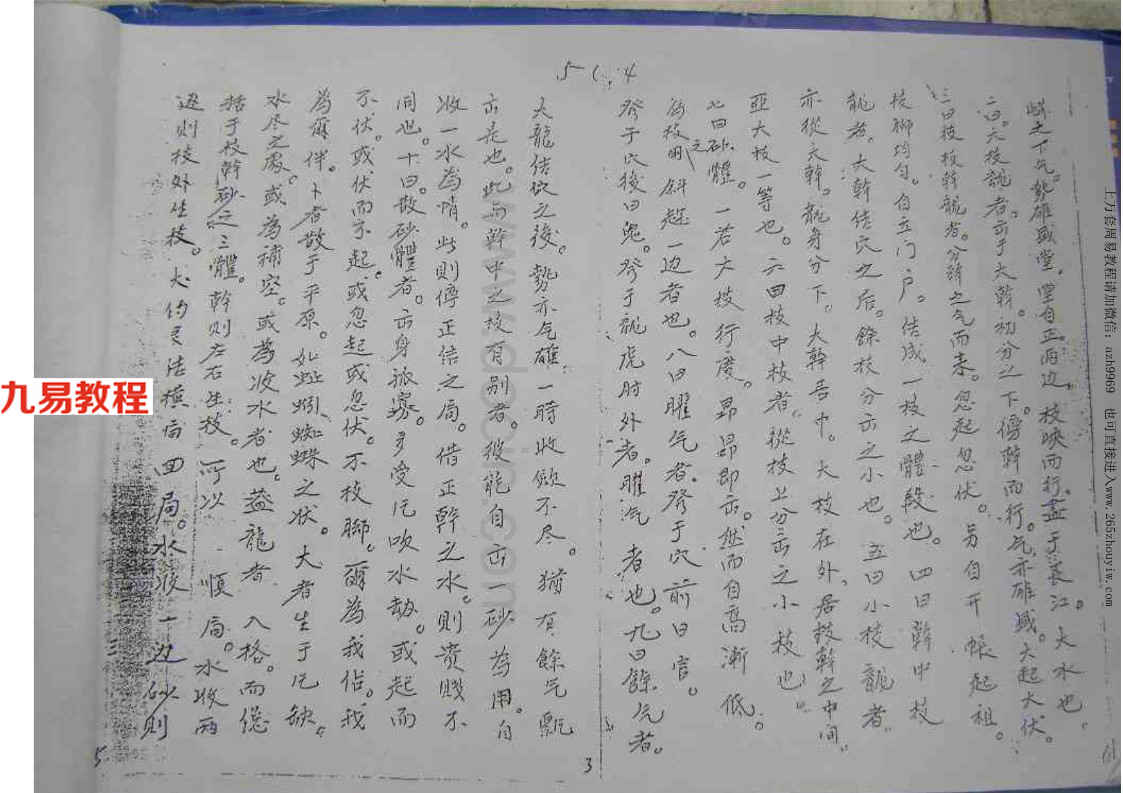 5-1.4
嶙之下气。势雄盛堂。堂自正。两边。枝映而行。尽于长江。大水也。
二曰。大枝龍者。出于大幹。初分之下。傍幹而行。气亦雄盛。大起大伏。
三曰枝枝幹龍者。分幹之气而来。忽起忽伏。另自开帐起祖。
枝腳均匀。自立门户。结成一枝之體段也。四曰幹中枝
龍者。大幹结穴之后。餘枝分出之小也。五曰小枝龍者
亦從大幹。龍身分下。大幹居中。大枝在外。居枝幹之中间。
亞大枝一等也。六曰枝中枝者。從枝上分出之小枝也。
七曰砂之體。一若大枝行度。昂昂即出。然而自高漸低。
斜趨一边者也。八曰曜气者。發于穴前曰官。
發于穴後曰鬼。發于龍虎肘外者。曜气者也。九曰餘气者。
大龍结穴之後。勢亦气雄。一時收斂不尽。猶有餘气
出是也。此与幹中之枝有别者。彼能自出一砂為用。自
收一水為情。此則傳正结之局。借正幹之水。則贵賤不
同也。十曰。散砂體者。出身孤寡。多受风吹水劫。或起而
不伏。或伏而不起。或忽起或忽伏。不枝腳。爾為我佔。我
為爾伴。卜者散于平原。如蚯蚓。蜘蛛之状。大者生于风缺。
水尽之處。或為補空。或為收水者也。蓋龍者入格。而總
括于枝幹砂之三體。幹則左右生枝。可以順局。水收两
边則枝外生枝。大约之法横局回局。水收一边砂則
3
5
61
九易教程
上万套周易教程请加微信：azh9969 也可直接进入www.265zhouyiw.com